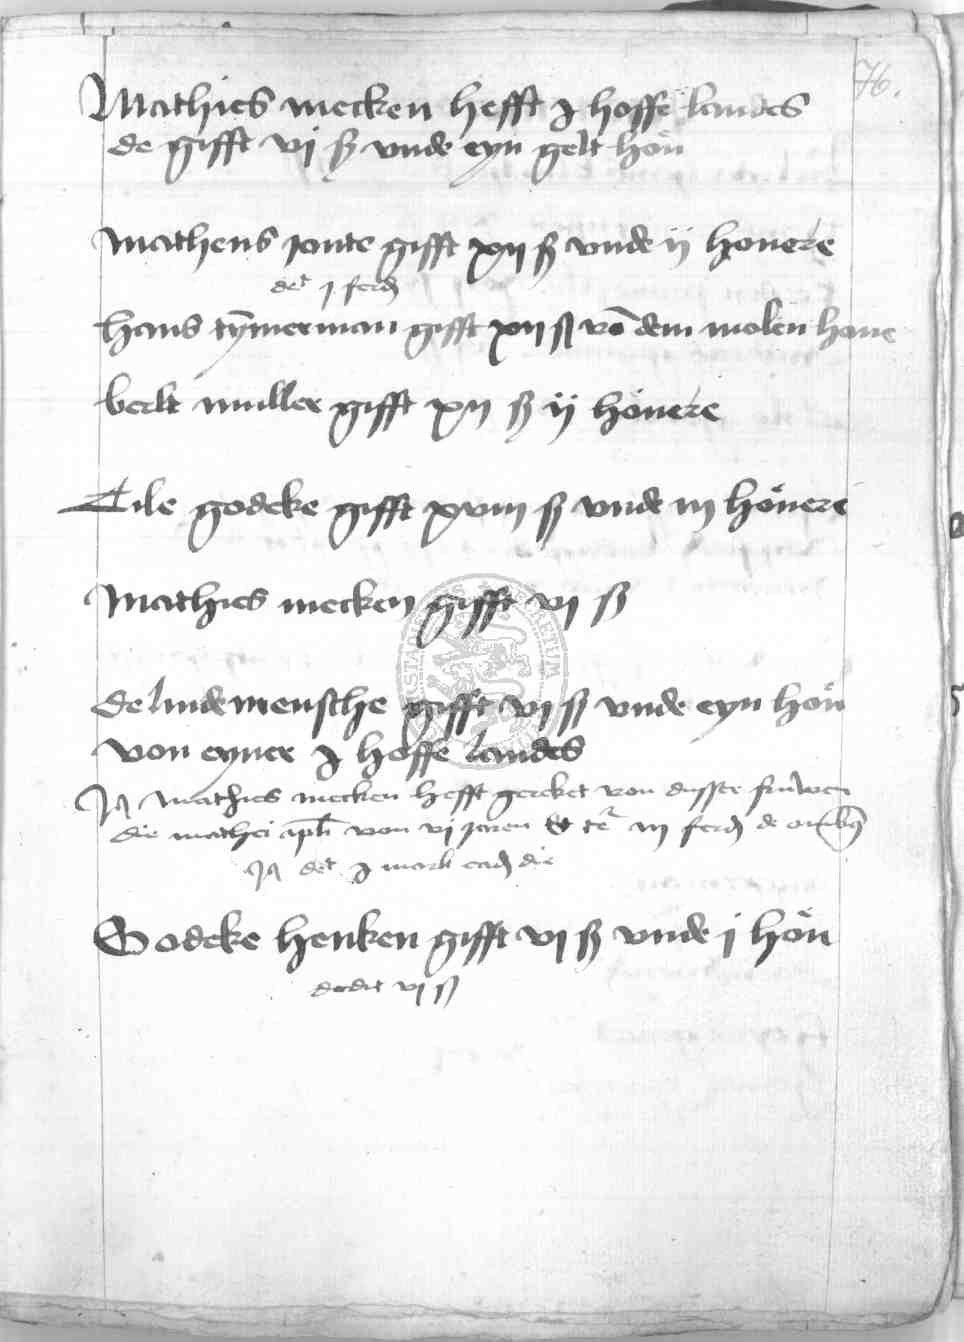 76.
Mathies mecken hefft j hoffe landes
de gifft vj ß vnde eyn gelt hön
Mathens jonte gifft xij ß vnde ij honere
det j ferd
hans tymerman gifft xij ß vo dem molen houe
berlt muller gifft xij ß ij hönere
Tile godeke gifft xviij ß vnde iij hönere
Mathies mecken gifft vj ß
de lindemensche gifft vj ß vnde eyn hön
von eyner j hoffe landes
Mathies mecken hefft gereket von dusser fruwen
die mathei apli von vj jaren iij ferd de
det j mark die
Godeke henken gifft vj ß vnde j hön
dedit vj ß